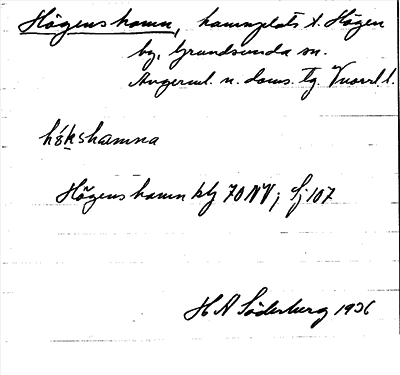 Högenshamn, hamnplats t. Högen
by, Grundsunda sn.
Ångerml. n. doms. tg. Vnorrl. l.
hö́kshamna
Högens hamn kbl 70 NV; Sj 107
H A Söderberg 1936